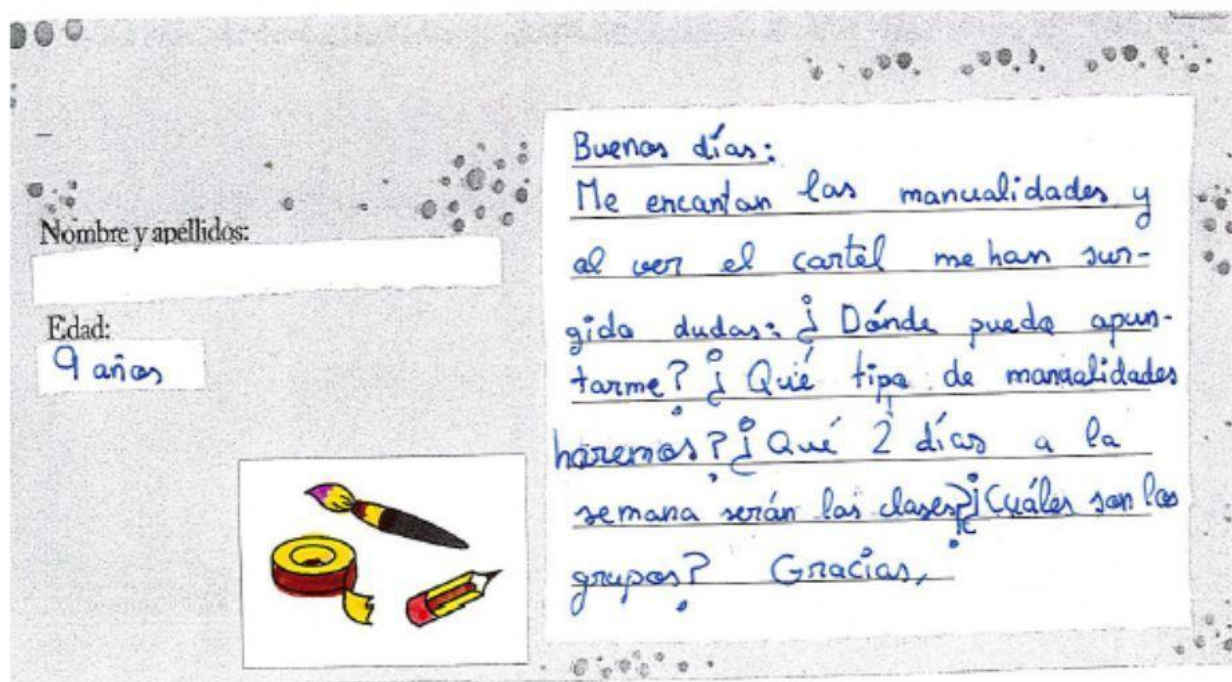 Nombre y apellidos:
Edad:
9 años
Buenos días:
Me encantan las manualidades y
al ver el cartel me han sur-
gido dudas: ¿Dónde puedo apun-
tarme? ¿Qué tipo de manualidades
haremos? ¿Qué 2 días a la
semana serán las clases? ¿Cuáles son los
grupos? Gracias,